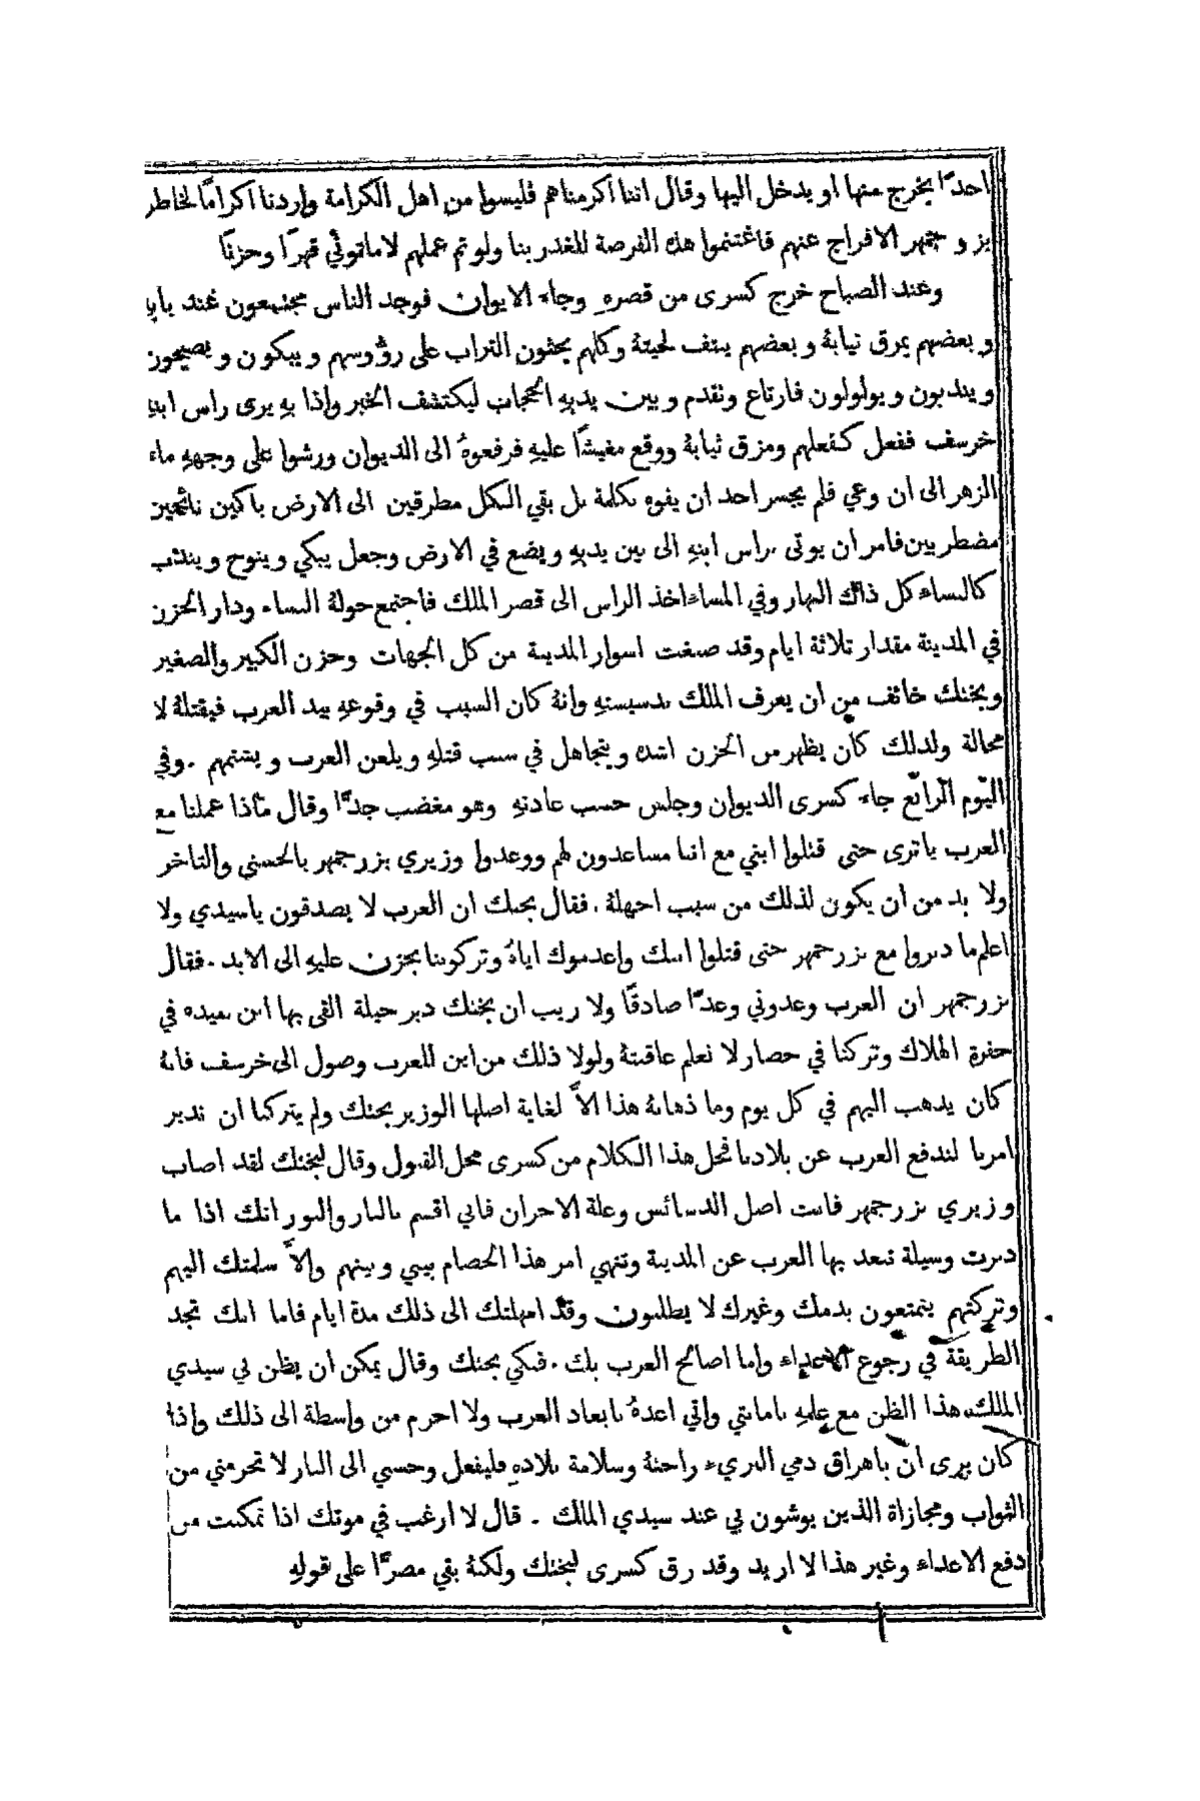 احدًا يخرج منها او يدخل اليها وقال اننا اكرمناهم فليسوا من اهل الكرامة واردنا اكرامًا لخاطر
بزرجمهر الافراج عنهم فاغتنموا هذه الفرصة للغدر بنا ولو تم عملهم لاماتوني قهرًا وحزنًا
وعند الصباح خرج كسرى من قصرهِ وجاء الايوان فوجد الناس مجتمعون عند بابهِ
وبعضهم يمزق ثيابهُ وبعضهم ينتف لحيتهُ وكلهم يحثون التراب على رؤوسهم ويبكون ويصيحون
ويندبون ويولولون فارتاع وتقدم وبين يديهِ الحجاب ليكتشف الخبر واذا بهِ يرى راس ابنهِ
خرسف ففعل كفعلهم ومزق ثيابهُ ووقع مغيشًا عليهِ فرفعوهُ الى الديوان ورشوا على وجههِ ماء
الزهر الى ان وعي فلم يجسر احد ان يفوه بكلمة بل بقي الكل مطرقين الى الارض باكين نائحين
مضطربين فامر ان يوتى براس ابنهِ الى بين يديهِ ويضع في الارض وجعل يبكي وينوح ويندب
كالنساء كل ذاك النهار وفي المساء اخذ الراس الى قصر الملك فاجتمع حولهُ النساء ودار الحزن
في المدينة مقدار ثلاثة ايام وقد صبغت اسوار المدينة من كل الجهات وحزن الكبير والصغير
وبختك خائف من ان يعرف الملك بدسيستهِ وانهُ كان السبب في وقوعهِ بيد العرب فيقتلهُ لا
محالة ولذلك كان يظهر من الحزن اشده ويتجاهل في سبب قتلهِ ويلعن العرب ويشتمهم . وفي
اليوم الرابع جاء كسرى الديوان وجلس حسب عادتهِ وهو مغضب جدًّا وقال ماذا عملنا مع
العرب ياترى حتى قتلوا ابني مع اننا مساعدون لهم ووعدوا وزيري بزرجمهر بالحسنى والتاخر
ولا بد من ان يكون لذلك من سبب اجهلهُ . فقال بختك ان العرب لا يصدقون ياسيدي ولا
اعلم ما دبروا مع بزرجمهر حتى قتلوا ابنك واعدموك اياهُ وتركونا بحزن عليهِ الى الابد . فقال
بزرجمهر ان العرب وعدوني وعدًا صادقًا ولا ريب ان بختك دبر حيلة القى بها ابن سيده في
حفرة الهلاك وتركنا في حصار لا نعلم عاقبتهُ ولولا ذلك من اين للعرب وصول الى خرسف فانهُ
كان يذهب اليهم في كل يوم وما ذهابهُ هذا الاَّ لغاية اصلها الوزير بختك ولم يتركنا ان ندبر
امرنا لندفع العرب عن بلادنا فحل هذا الكلام من كسرى محل القبول وقال لبختك لقد اصاب
وزيري بزرجمهر فانت اصل الدسائس وعلة الاحزان فاني اقسم بالنار والنور انك اذا ما
دبرت وسيلة تبعد بها العرب عن المدينة وتنهي امر هذا الخصام بيني وبينهم والاَّ سلمتك اليهم
وتركتهم يتمتعون بدمك وغيرك لا يطلبون وقد امهلتك الى ذلك مدة ايام فاما انك تجد
الطريقة في رجوع الاعداء واما اصالح العرب بك . فبكي بختك وقال يمكن ان يظن بي سيدي
الملك هذا الظن مع علمهِ بامانتي واني اعدهُ بابعاد العرب ولا احرم من واسطة الى ذلك واذا
كان يرى ان باهراق دمي البريء راحتهُ وسلامة بلادهِ فليفعل وحسبي الى النار لا تحرمني من
الثواب ومجازاة الذين يوشون بي عند سيدي الملك . قال لا ارغب في موتك اذا تمكنت من
دفع الاعداء وغير هذا لا اريد وقد رق كسرى لبختك ولكنهُ بقي مصرًّا على قولهِ